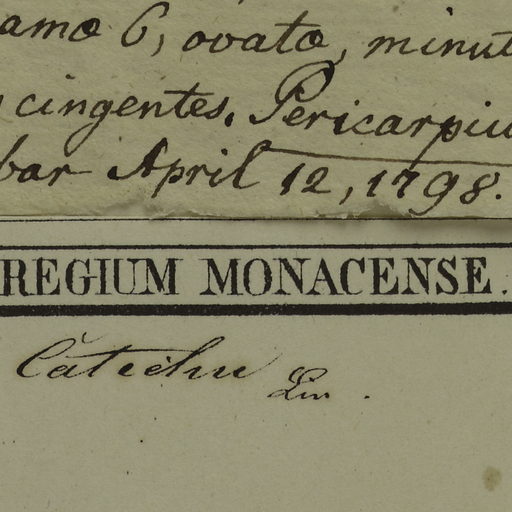 amæ 6, ovatæ, minut
cingentes. Pericarpiu
bar April 12, 1798.
REGIUM MONACENSE.
Cătechu Lin.